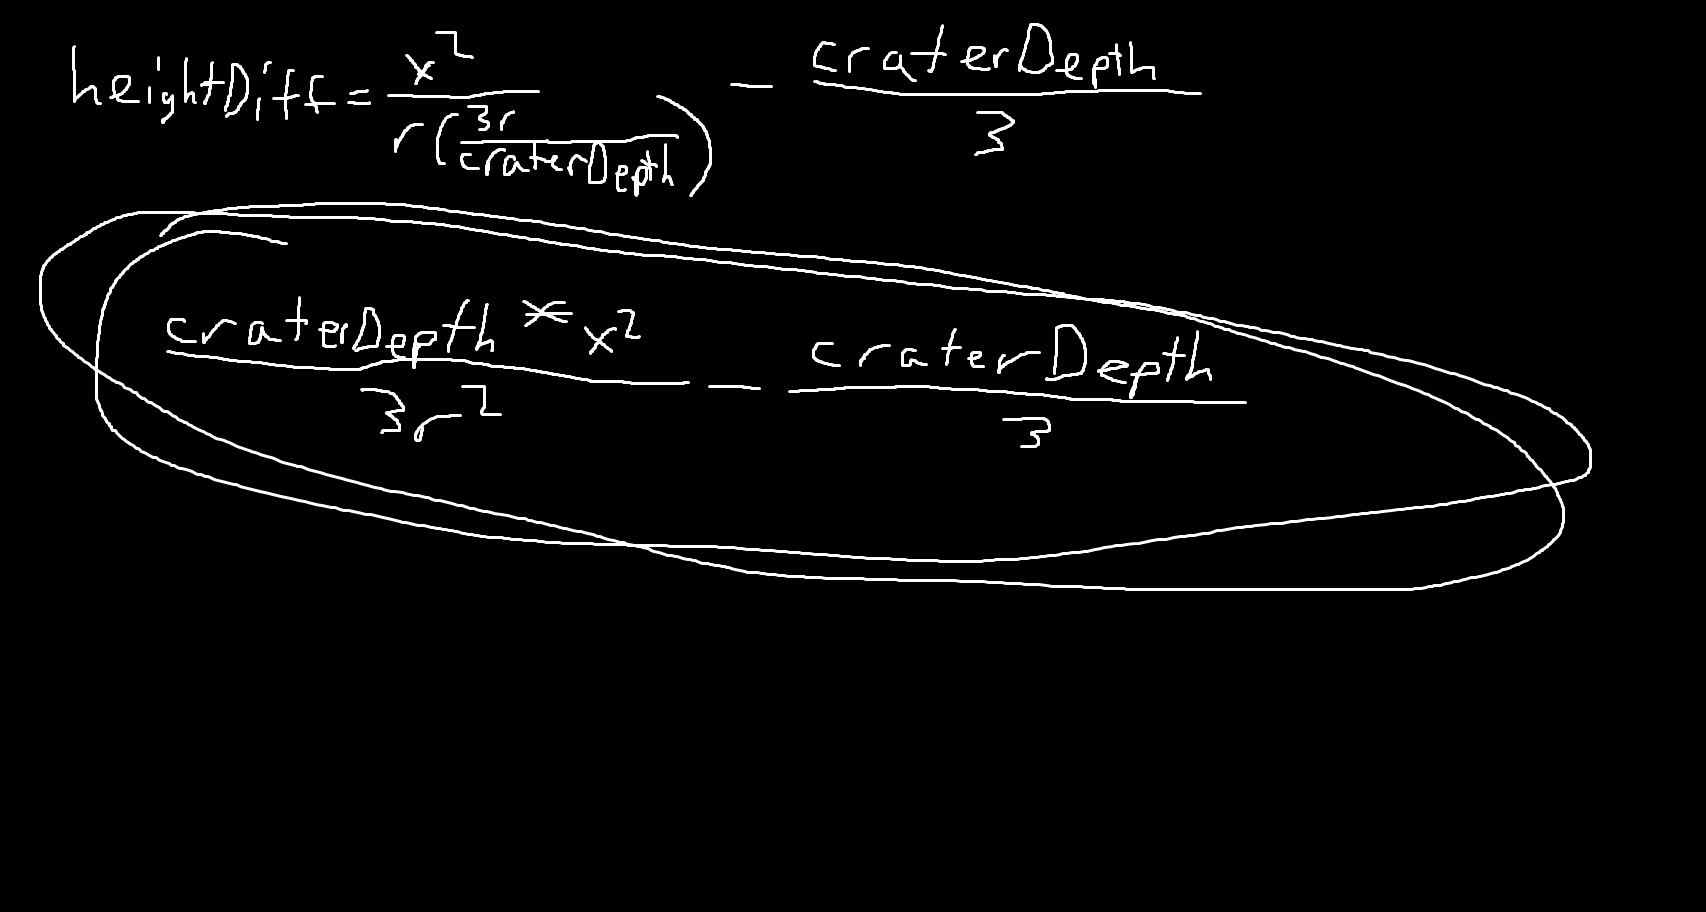 heightDiff = x² / r(3r / craterDepth) - craterDepth / 3
craterDepth * x² / 3r² - craterDepth / 3